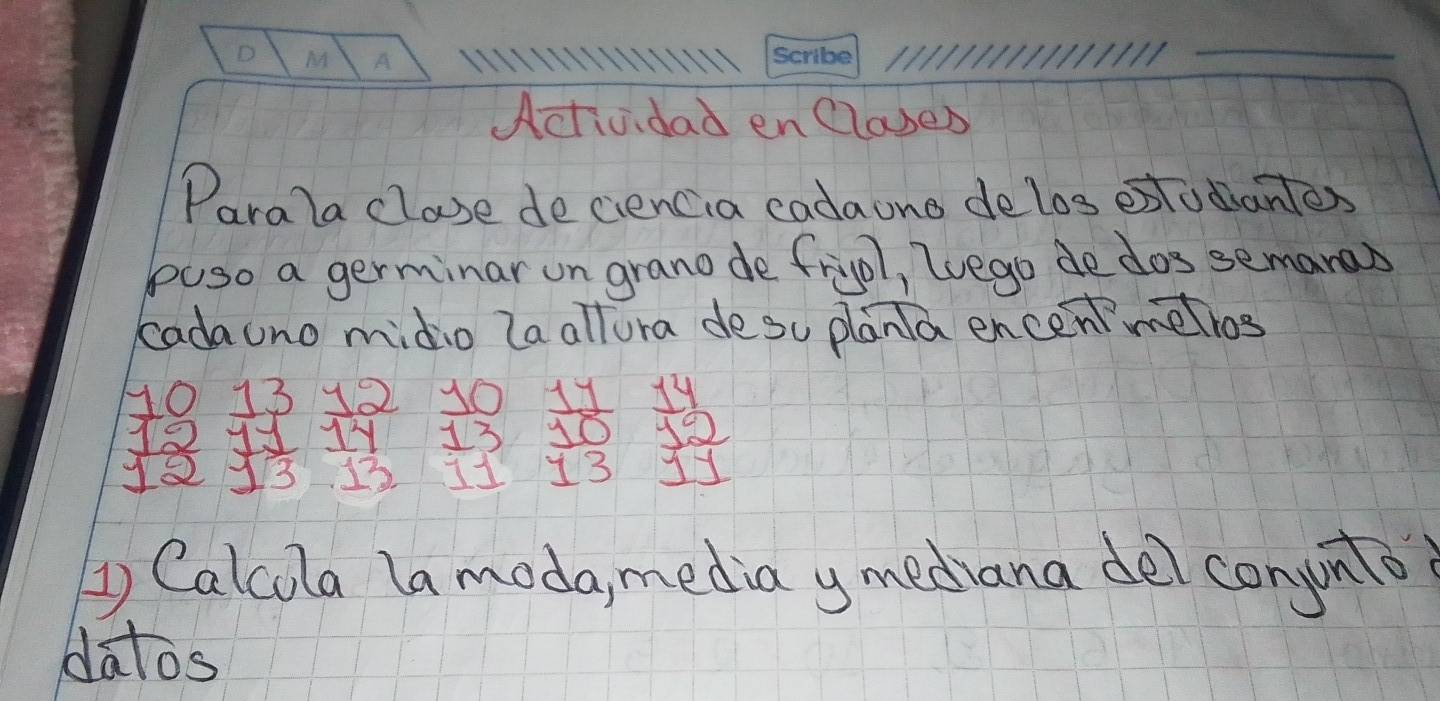 D M A Scribe
Actividad en Clases
Para la clase de ciencia cada uno de los estudiantes
puso a germinar un grano de frijol, luego de dos semanas
cada uno midio la altura de su planta en centimetros
10 13 12 10 11 14
12 11 14 13 10 12
12 13 13 11 13 11
1) Calcula la moda, media y mediana del conjunto d
datos